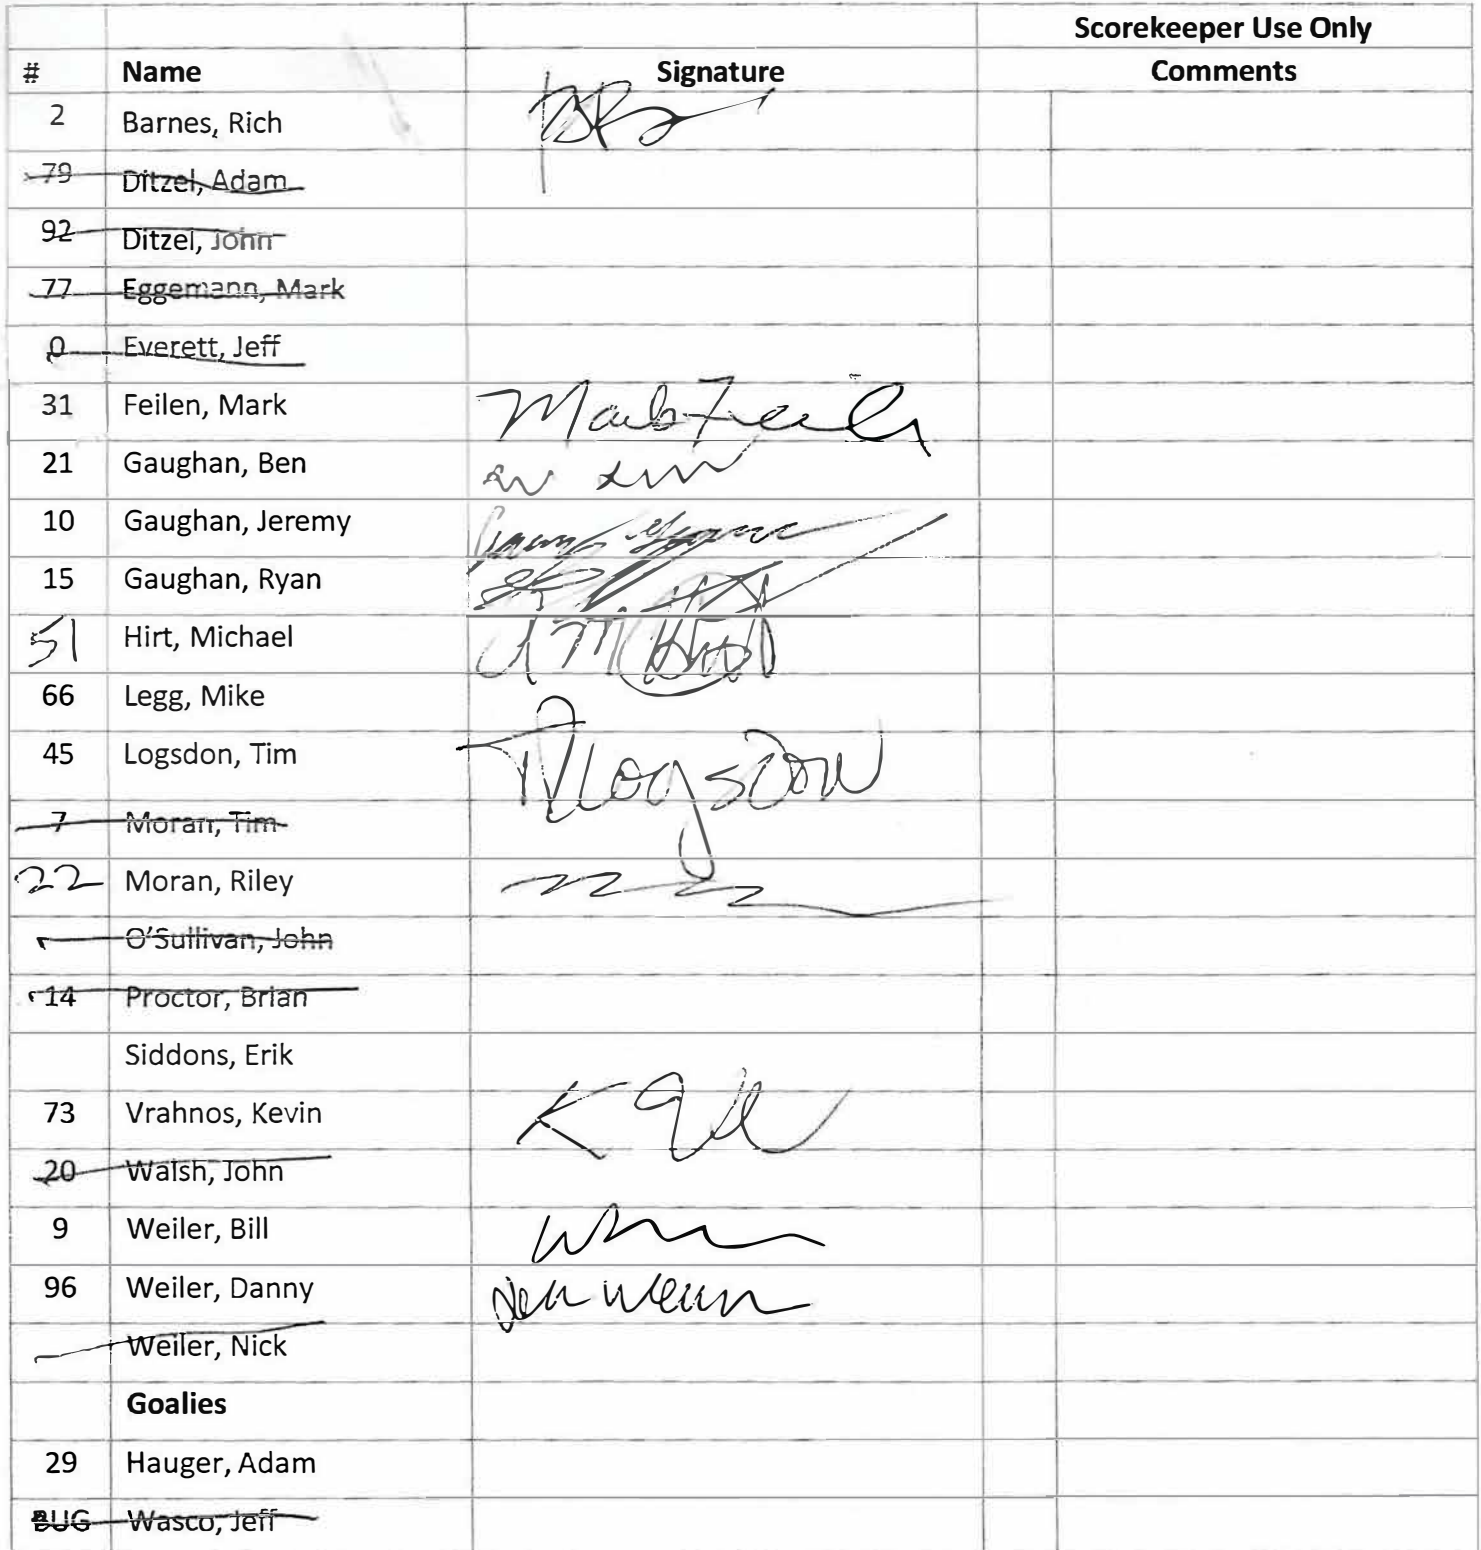 Scorekeeper Use Only
# Name Signature Comments
2 Barnes, Rich
79 Ditzel, Adam
92 Ditzel, John
77 Eggemann, Mark
0 Everett, Jeff
31 Feilen, Mark Mark Feilen
21 Gaughan, Ben
10 Gaughan, Jeremy
15 Gaughan, Ryan
51 Hirt, Michael
66 Legg, Mike
45 Logsdon, Tim Logsdon
7 Moran, Tim
22 Moran, Riley
O'Sullivan, John
14 Proctor, Brian
Siddons, Erik
73 Vrahnos, Kevin
20 Walsh, John
9 Weiler, Bill
96 Weiler, Danny
Weiler, Nick
Goalies
29 Hauger, Adam
BUG Wasco, Jeff